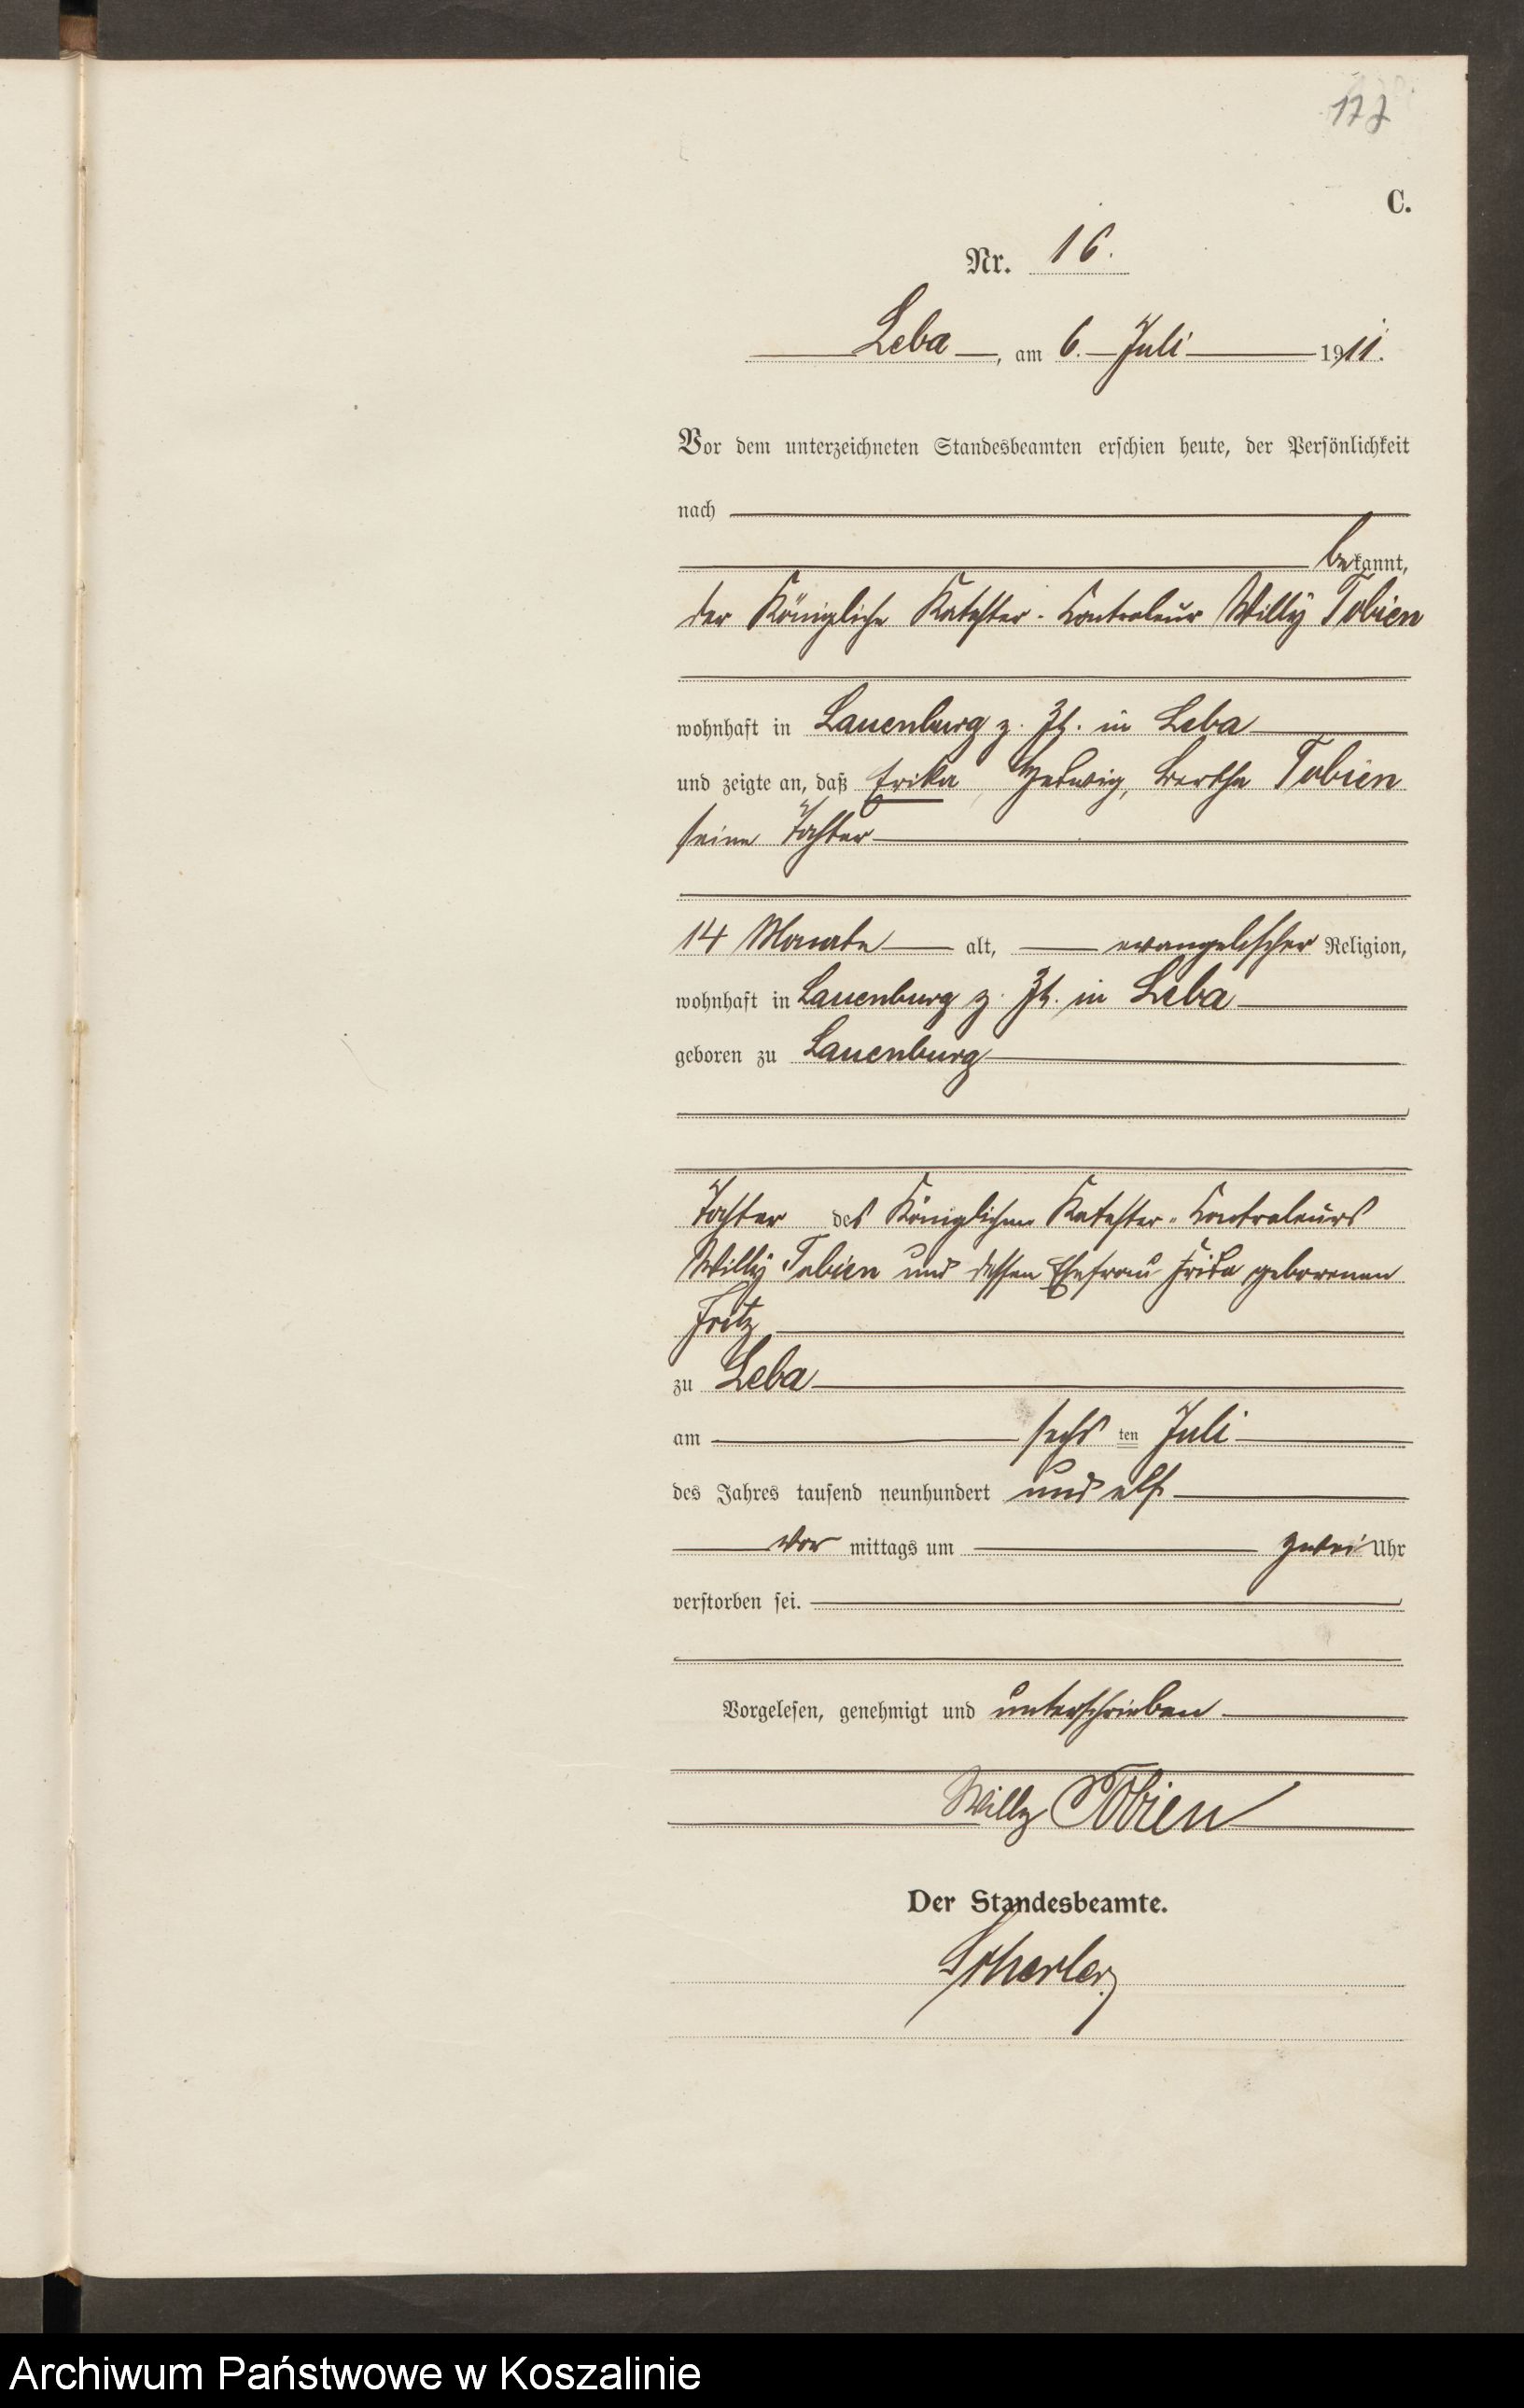 177
C.
Nr. 16.
Leba, am 6. Juli 1911.
Vor dem unterzeichneten Standesbeamten erschien heute, der Persönlichkeit
nach
bekannt,
der Königliche Kataster-Kontroleur Willy Tobien
wohnhaft in Lauenburg z. Zt. in Leba
und zeigte an, daß Erika, Hedwig, Bertha Tobien
seine Tochter
14 Monate alt, evangelischer Religion,
wohnhaft in Lauenburg z. Zt. in Leba
geboren zu Lauenburg
Tochter des Königlichen Kataster-Kontroleurs
Willy Tobien und dessen Ehefrau Frida geborenen
Fritz
zu Leba
am sechs ten Juli
des Jahres tausend neunhundert und elf
vor mittags um zwei Uhr
verstorben sei.
Vorgelesen, genehmigt und unterschrieben
Willy Tobien
Der Standesbeamte.
Archiwum Państwowe w Koszalinie